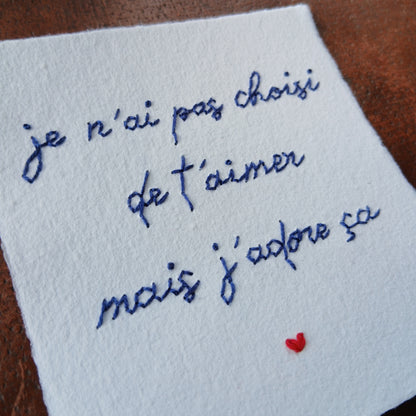 je n'ai pas choisi
de t'aimer
mais j'adore ça